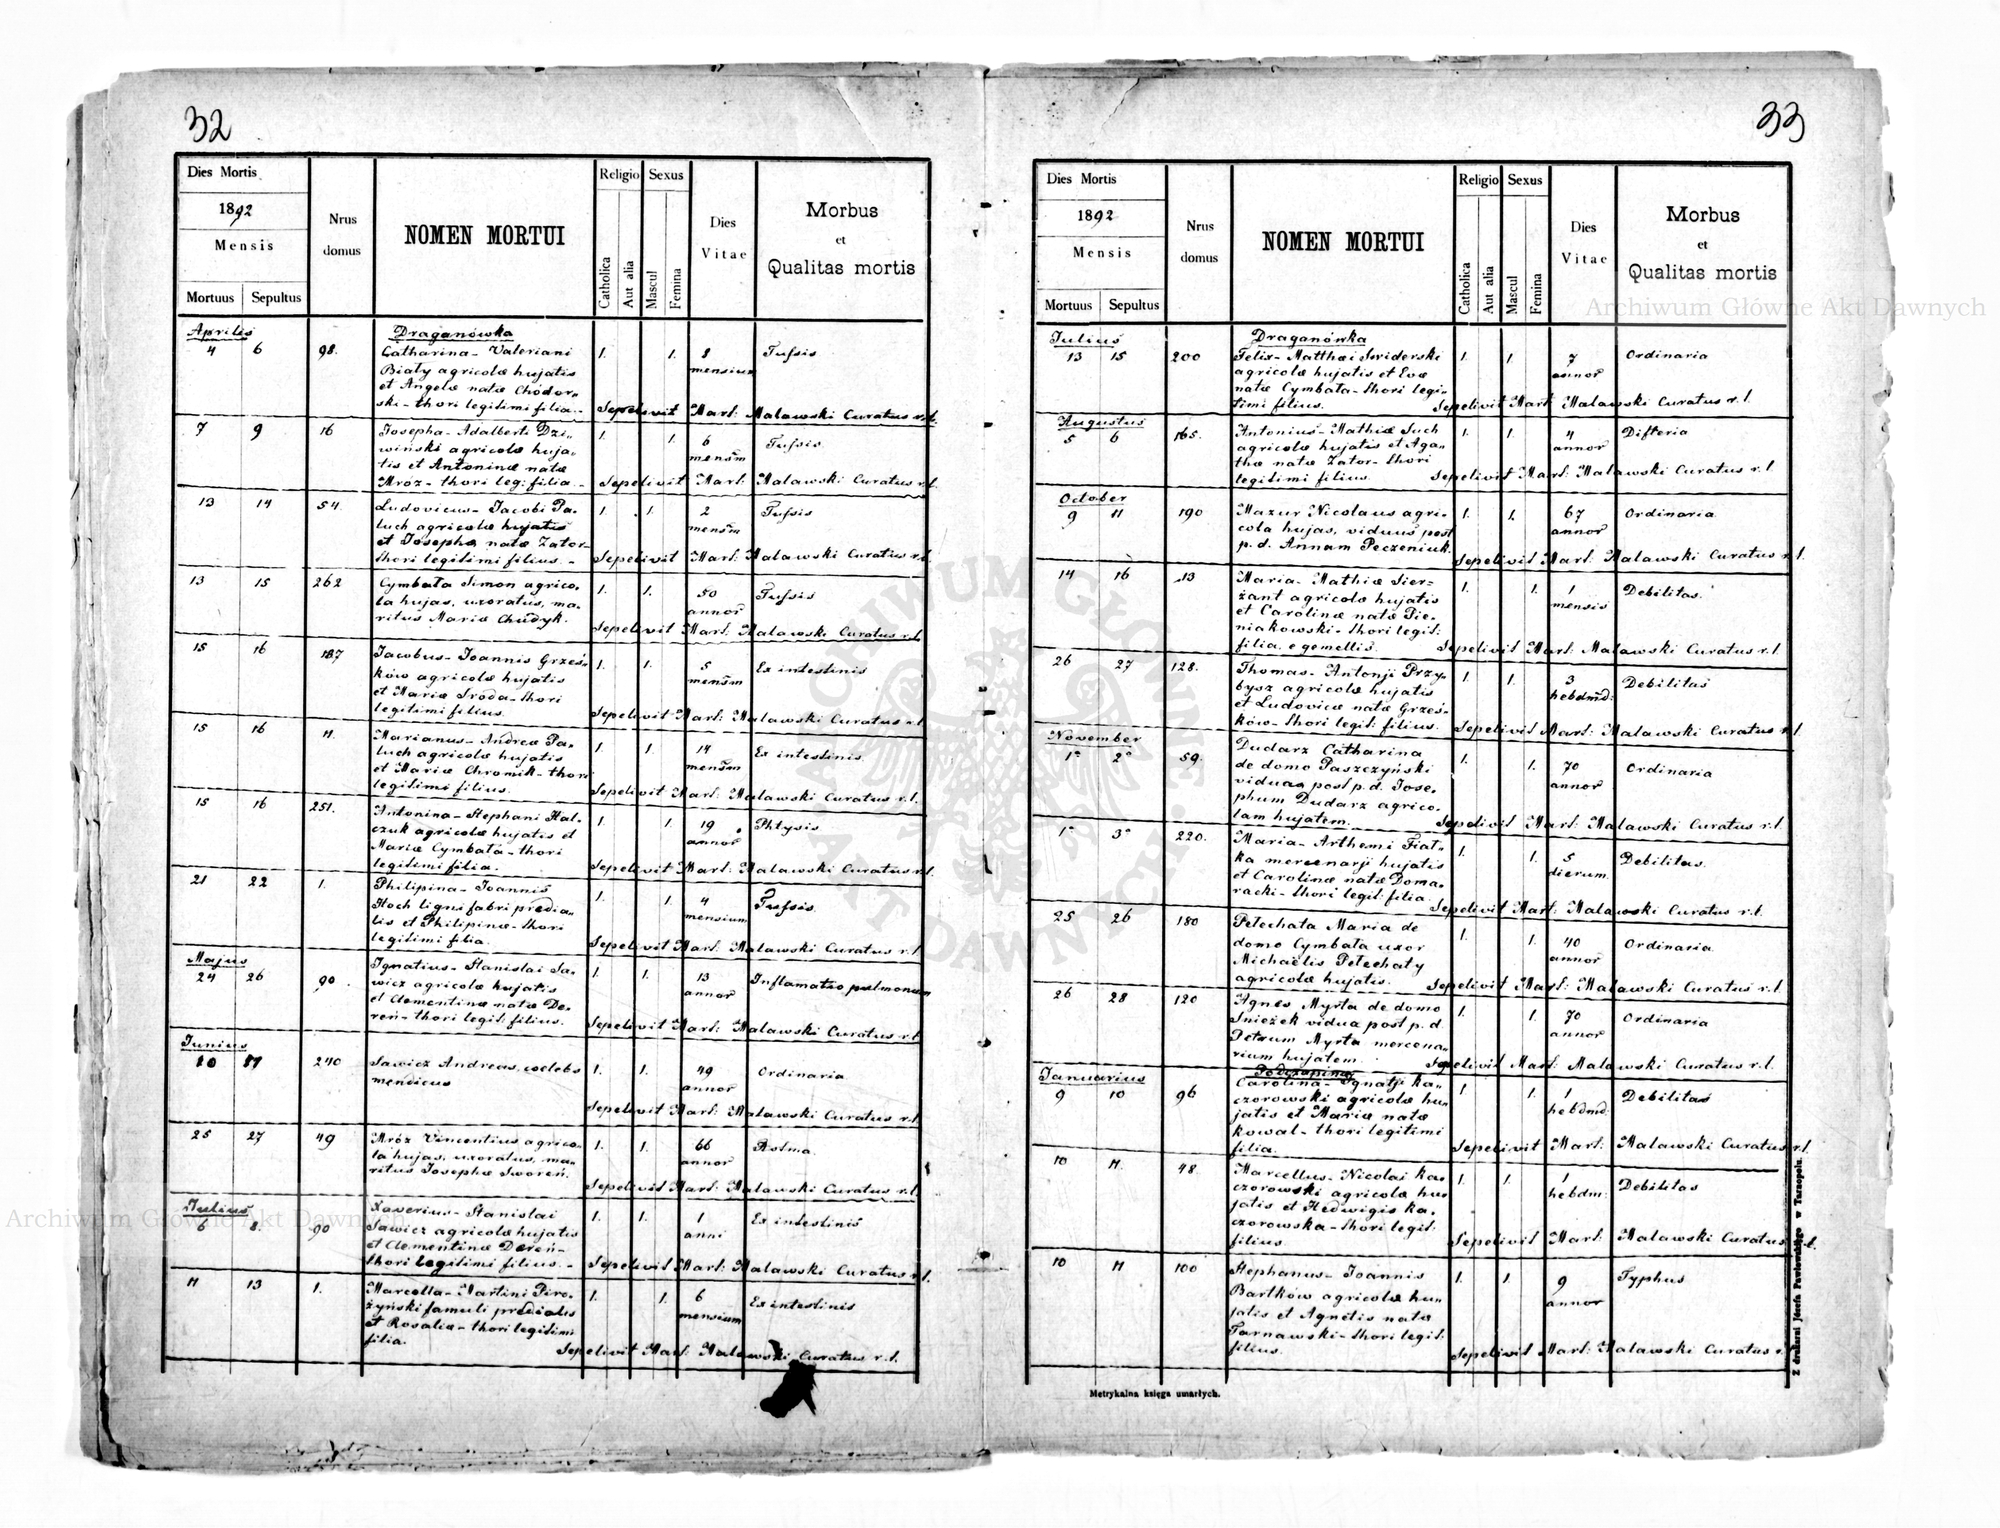 32
Dies Mortis
1892
Mensis
Mortuus Sepultus
Nrus domus
NOMEN MORTUI
Religio
Catholica
Aut alia
Sexus
Mascul
Femina
Dies Vitae
Morbus
et
Qualitas mortis
Aprilis
Draganówka
4 6 98. Catharina - Valeriani 1. 1. 8 Tussis
Biały agricolæ hujatis mensium
et Angelæ natæ Chódor„
ski - thori legitimi filia.-
Sepelivit Mart: Malawski Curatus r.l.
7 9 16 Josepha - Adalberti Dzi„ 1. 1. 6 Tussis
wiński agricolæ huja„ mensm
tis et Antoninæ natæ
Mróz - thori leg: filia.-
Sepelivit Mart: Malawski Curatus r.l.
13 14 54. Ludovicus - Jacobi Pa„ 1. 1. 2 Tussis
luch agricolæ hujatis mensm
et Josephæ natæ Zator-
thori legitimi filius. -
Sepelivit Mart: Malawski Curatus r.l.
13 15 262 Cymbała Simon agrico„ 1. 1. 50 Tussis
la hujas, uxoratus, ma„ annor
ritus Mariæ Chudyk.
Sepelivit Mart: Malawski Curatus r.l.
15 16 187 Jacobus - Joannis Grześ„ 1. 1. 5 Ex intestinis
ków agricolæ hujatis mensm
et Mariæ Sroda - thori
legitimi filius.
Sepelivit Mart: Malawski Curatus r.l.
15 16 11. Marianus - Andreæ Pa„ 1. 1. 14 Ex intestinis.
luch agricolæ hujatis mensm
et Mariæ Chromik - thori
legitimi filius.
Sepelivit Mart: Malawski Curatus r.l.
15 16 251. Antonina - Stephani Hal„ 1. 1. 19 Phtysis
czuk agricolæ hujatis et annor
Mariæ Cymbała - thori
legitimi filia.
Sepelivit Mart: Malawski Curatus r.l.
21 22 1. Philipina - Joannis 1. 1. 4 Tussis
Hoch ligni fabri prædia„ mensium
lis et Philipinæ - thori
legitimi filia.
Sepelivit Mart: Malawski Curatus r.l.
Majus
24 26 90. Ignatius - Stanislai Sa„ 1. 1. 13 Inflamatio pulmonum
wicz agricolæ hujatis annor
et Clementinæ natæ De„
reń - thori legit: filius.
Sepelivit Mart: Malawski Curatus r.l.
Junius
10 11 240 Sawicz Andreas, cælebs 1. 1. 49 Ordinaria
mendicus annor
Sepelivit Mart: Malawski Curatus r.l.
25 27 49 Mróz Vincentius agrico„ 1. 1. 66 Astma
la hujas, uxoratus, ma„ annor
ritus Josephæ Sworeń.
Sepelivit Mart: Malawski Curatus r.l.
Julius
6 8. 90 Xaverius - Stanislai 1. 1. 1 Ex intestinis
Sawicz agricolæ hujatis anni
et Clementinæ Dereń -
thori legitimi filius. -
Sepelivit Mart: Malawski Curatus r.l.
11 13 1. Marcella - Martini Piro„ 1. 1. 6 Ex intestinis
żyński famuli prædialis mensium
et Rosaliæ - thori legitimi
filia.
Sepelivit Mart: Malawski Curatus r.l.
33
Dies Mortis
1892
Mensis
Mortuus Sepultus
Nrus domus
NOMEN MORTUI
Religio
Catholica
Aut alia
Sexus
Mascul
Femina
Dies Vitae
Morbus
et
Qualitas mortis
Julius
Draganówka
13 15 200 Felix - Matthæi Swiderski 1. 1. 7 Ordinaria
agricolæ hujatis et Evæ annor
natæ Cymbała - thori legi„
timi filius.
Sepelivit Mart: Malawski Curatus r.l.
Augustus
5 6 165. Antonius - Mathiæ Such 1. 1. 4 Difteria
agricolæ hujatis et Aga„ annor
thæ natæ Zator - thori
legitimi filius.
Sepelivit Mart: Malawski Curatus r.l.
October
9 11 190 Mazur Nicolaus agri„ 1. 1. 67 Ordinaria
cola hujas, viduus post annor
p. d. Annam Peczeniuk.
Sepelivit Mart: Malawski Curatus r.l.
14 16 13 Maria - Mathiæ Sier„ 1. 1. 1 Debilitas.
żant agricolæ hujatis mensis
et Carolinæ natæ Pie„
niakowski - thori legit:
filia, e gemellis.
Sepelivit Mart: Malawski Curatus r.l.
26 27 128. Thomas - Antonji Przy„ 1. 1. 3 Debilitas
bysz agricolæ hujatis hebdmd:
et Ludovicæ natæ Grześ„
ków - thori legit: filius.
Sepelivit Mart: Malawski Curatus r.l.
November
1a 2a 59. Dudarz Catharina 1. 1. 70 Ordinaria
de domo Paszczyński annor
vidua post p. d. Jose„
phum Dudarz agrico„
lam hujatem.
Sepelivit Mart: Malawski Curatus r.l.
1a 3a 220. Maria - Arthemi Fiał„ 1. 1. 5 Debilitas.
ka mercenarji hujatis dierum
et Carolinæ natæ Doma„
racki - thori legit: filia
Sepelivit Mart: Malawski Curatus r.l.
25 26 180 Petechata Maria de 1. 1. 40 Ordinaria
domo Cymbała uxor annor
Michaëlis Petechaty
agricolæ hujatis.
Sepelivit Mart: Malawski Curatus r.l.
26 28 120 Agnes Myrta de domo 1. 1. 70 Ordinaria
Snieżek vidua post p. d. annor
Petrum Myrta mercena„
rium hujatem.
Sepelivit Mart: Malawski Curatus r.l.
Januarius
9 10 96 Carolina - Ignatji Ka„ 1. 1. 1 Debilitas
czorowski agricolæ hu„ hebdmd:
jatis et Mariæ natæ
Kowal - thori legitimi
filia.
Sepelivit Mart: Malawski Curatus r.l.
10 11. 48. Marcellus - Nicolai Ka„ 1. 1. 1 Debilitas
czorowski agricolæ hu„ hebdm:
jatis et Hedwigis Ka„
czorowska - thori legit:
filius.
Sepelivit Mart: Malawski Curatus r.l.
10 11 100 Stephanus - Joannis 1. 1. 9 Typhus
Bartków agricolæ hu„ annor
jatis et Agnetis natæ
Tarnawski - thori legit:
filius.
Sepelivit Mart: Malawski Curatus r.l.
Metrykalna księga umarłych.
Z drukarni Józefa Pawłowskiego w Tarnopolu.
Archiwum Główne Akt Dawnych
Archiwum Główne Akt Dawnych
ARCHIWUM GŁÓWNE AKT DAWNYCH